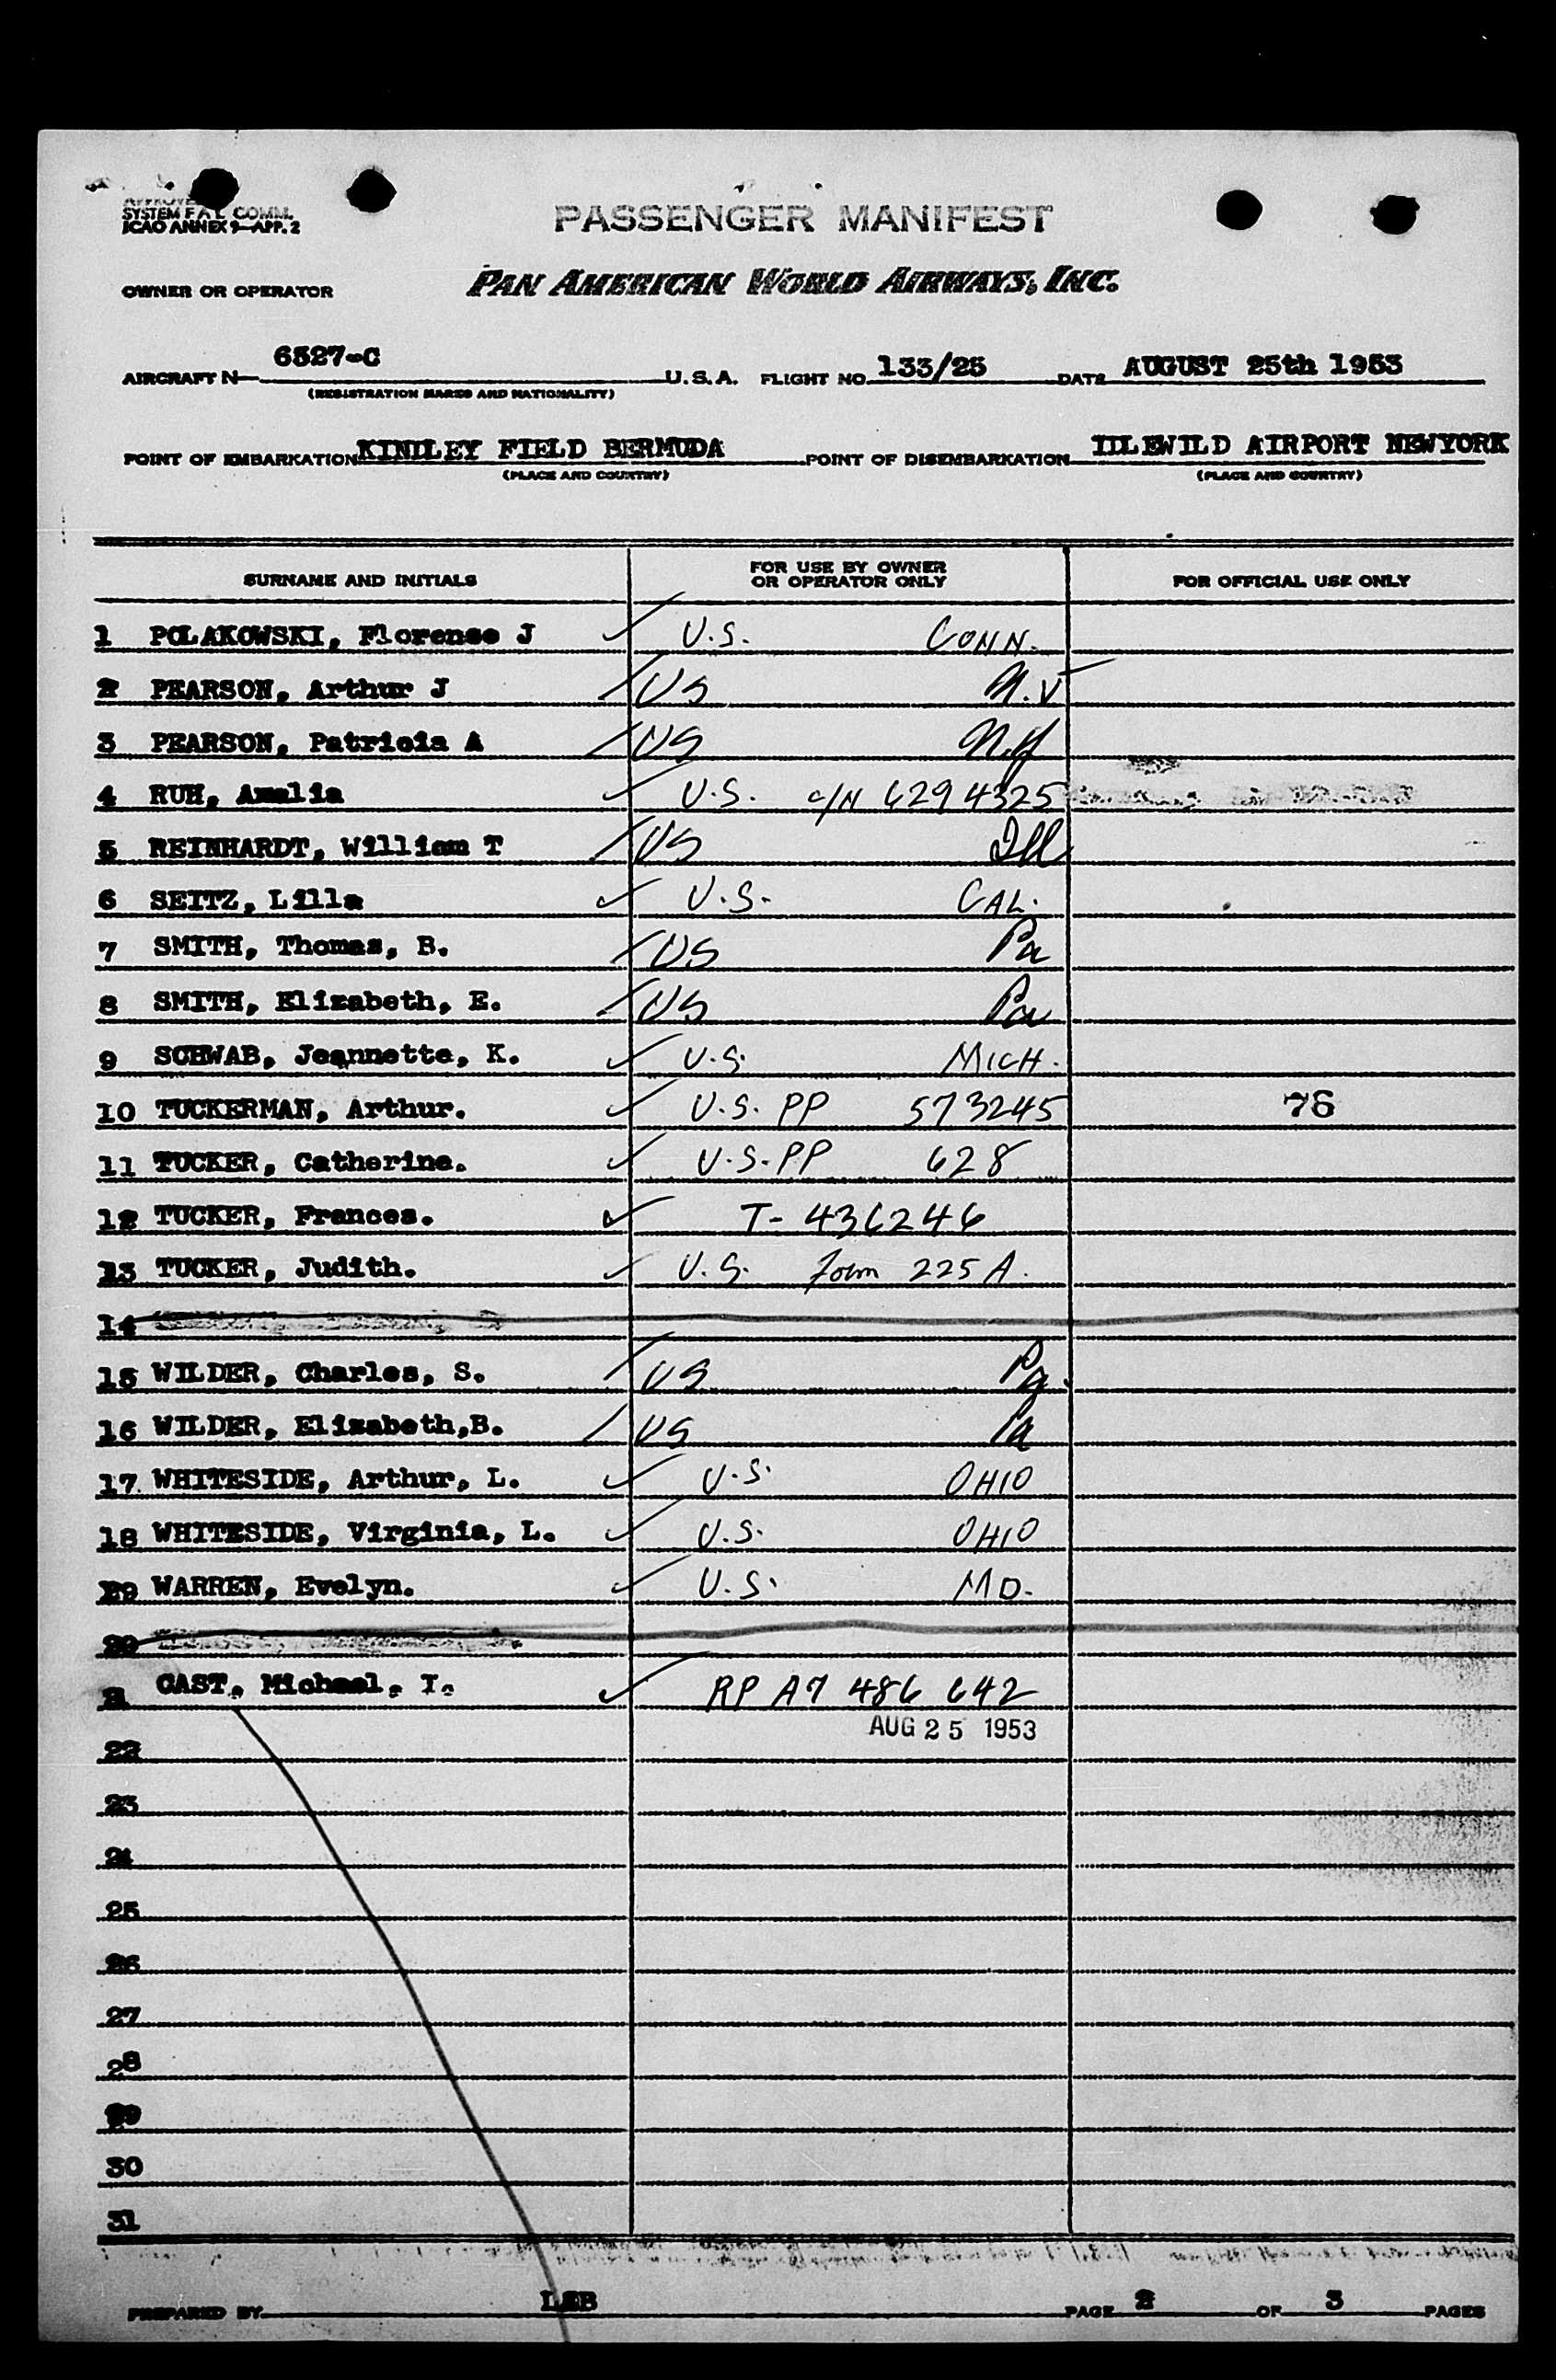 SYSTEM F A L COMM.
ICAO ANNEX 9—APP. 2
PASSENGER MANIFEST
OWNER OR OPERATOR PAN AMERICAN WORLD AIRWAYS, INC.
AIRCRAFT N 6527-C U.S.A. FLIGHT NO 133/25 DATE AUGUST 25th 1953
(REGISTRATION MARKS AND NATIONALITY)
POINT OF EMBARKATION KINDLEY FIELD BERMUDA POINT OF DISEMBARKATION IDLEWILD AIRPORT NEWYORK
(PLACE AND COUNTRY) (PLACE AND COUNTRY)
SURNAME AND INITIALS FOR USE BY OWNER OR OPERATOR ONLY FOR OFFICIAL USE ONLY
1 POLAKOWSKI, Florense J U.S. CONN.
2 PEARSON, Arthur J US N.Y
3 PEARSON, Patricia A US N.Y
4 RUH, Amalia U.S. C/N 6294325
5 REINHARDT, William T US Ill
6 SEITZ, Lilla U.S. CAL.
7 SMITH, Thomas, B. US Pa
8 SMITH, Elizabeth, E. US Pa
9 SCHWAB, Jeannette, K. U.S. MICH.
10 TUCKERMAN, Arthur. U.S. PP 573245 76
11 TUCKER, Catherine. U.S. PP 628
12 TUCKER, Frances. T- 436246
13 TUCKER, Judith. U.S. Form 225 A.
14
15 WILDER, Charles, S. US Pa.
16 WILDER, Elizabeth,B. US Pa
17. WHITESIDE, Arthur, L. U.S. OHIO
18 WHITESIDE, Virginia, L. U.S. OHIO
19 WARREN, Evelyn. U.S. MD.
20
21 CAST, Michael, I. RP A7 486 642
22 AUG 25 1953
23
24
25
26
27
28
29
30
31
PREPARED BY PAGE 2 OF 3 PAGES